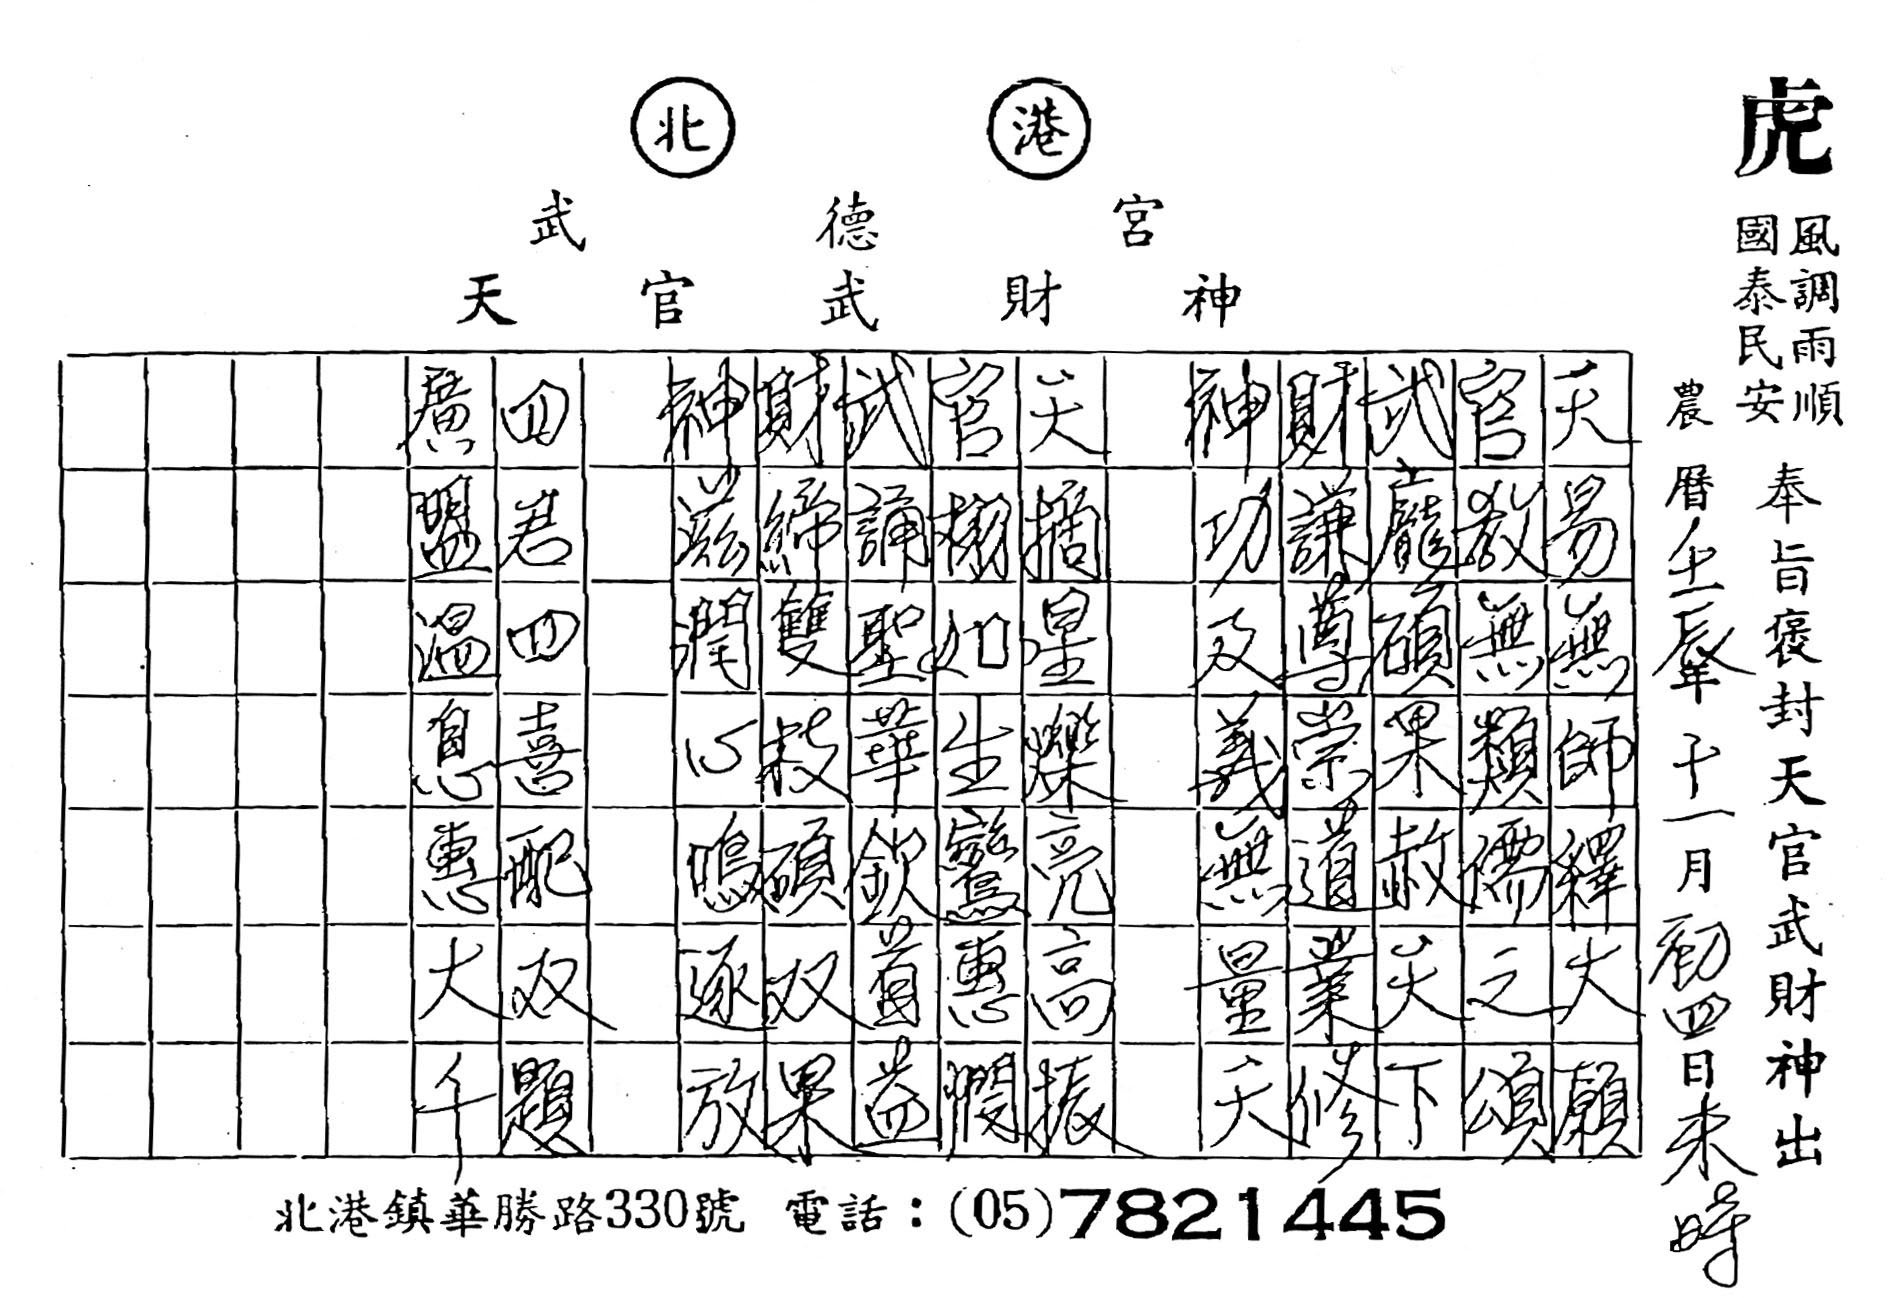 北港
武德宮
天官武財神
虎
風調雨順
國泰民安
奉旨褒封天官武財神出
農曆壬辰年十一月初四日未時
天易無師釋大願
官教無類儒之頌
武龐碩果赦天下
財謙尊崇道業修
神功及義無量天
天摘星爍亮高振
官栩如生鸞惠憫
武誦聖華欽首益
財締雙碩双果
神滋潤心鳴逐放
四君四喜配双題
廣盟溫息惠大千
北港鎮華勝路330號 電話：(05)7821445